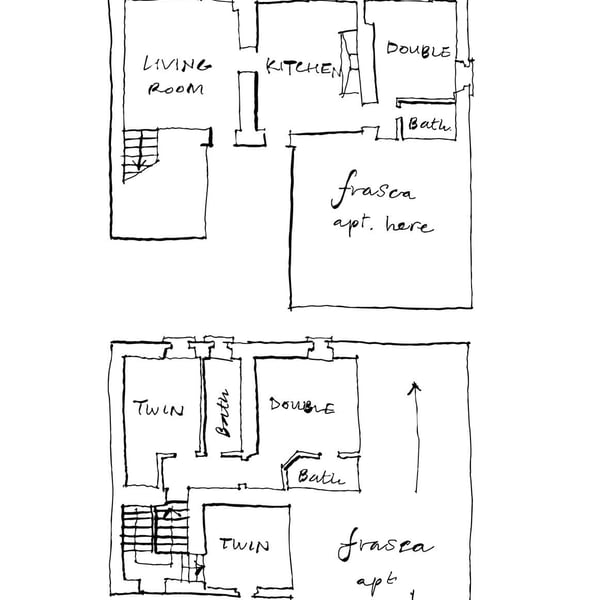 LIVING
ROOM
KITCHEN
DOUBLE
Bath.
frasca
apt. here
TWIN
Bath
DOUBLE
Bath
TWIN
frasca
apt